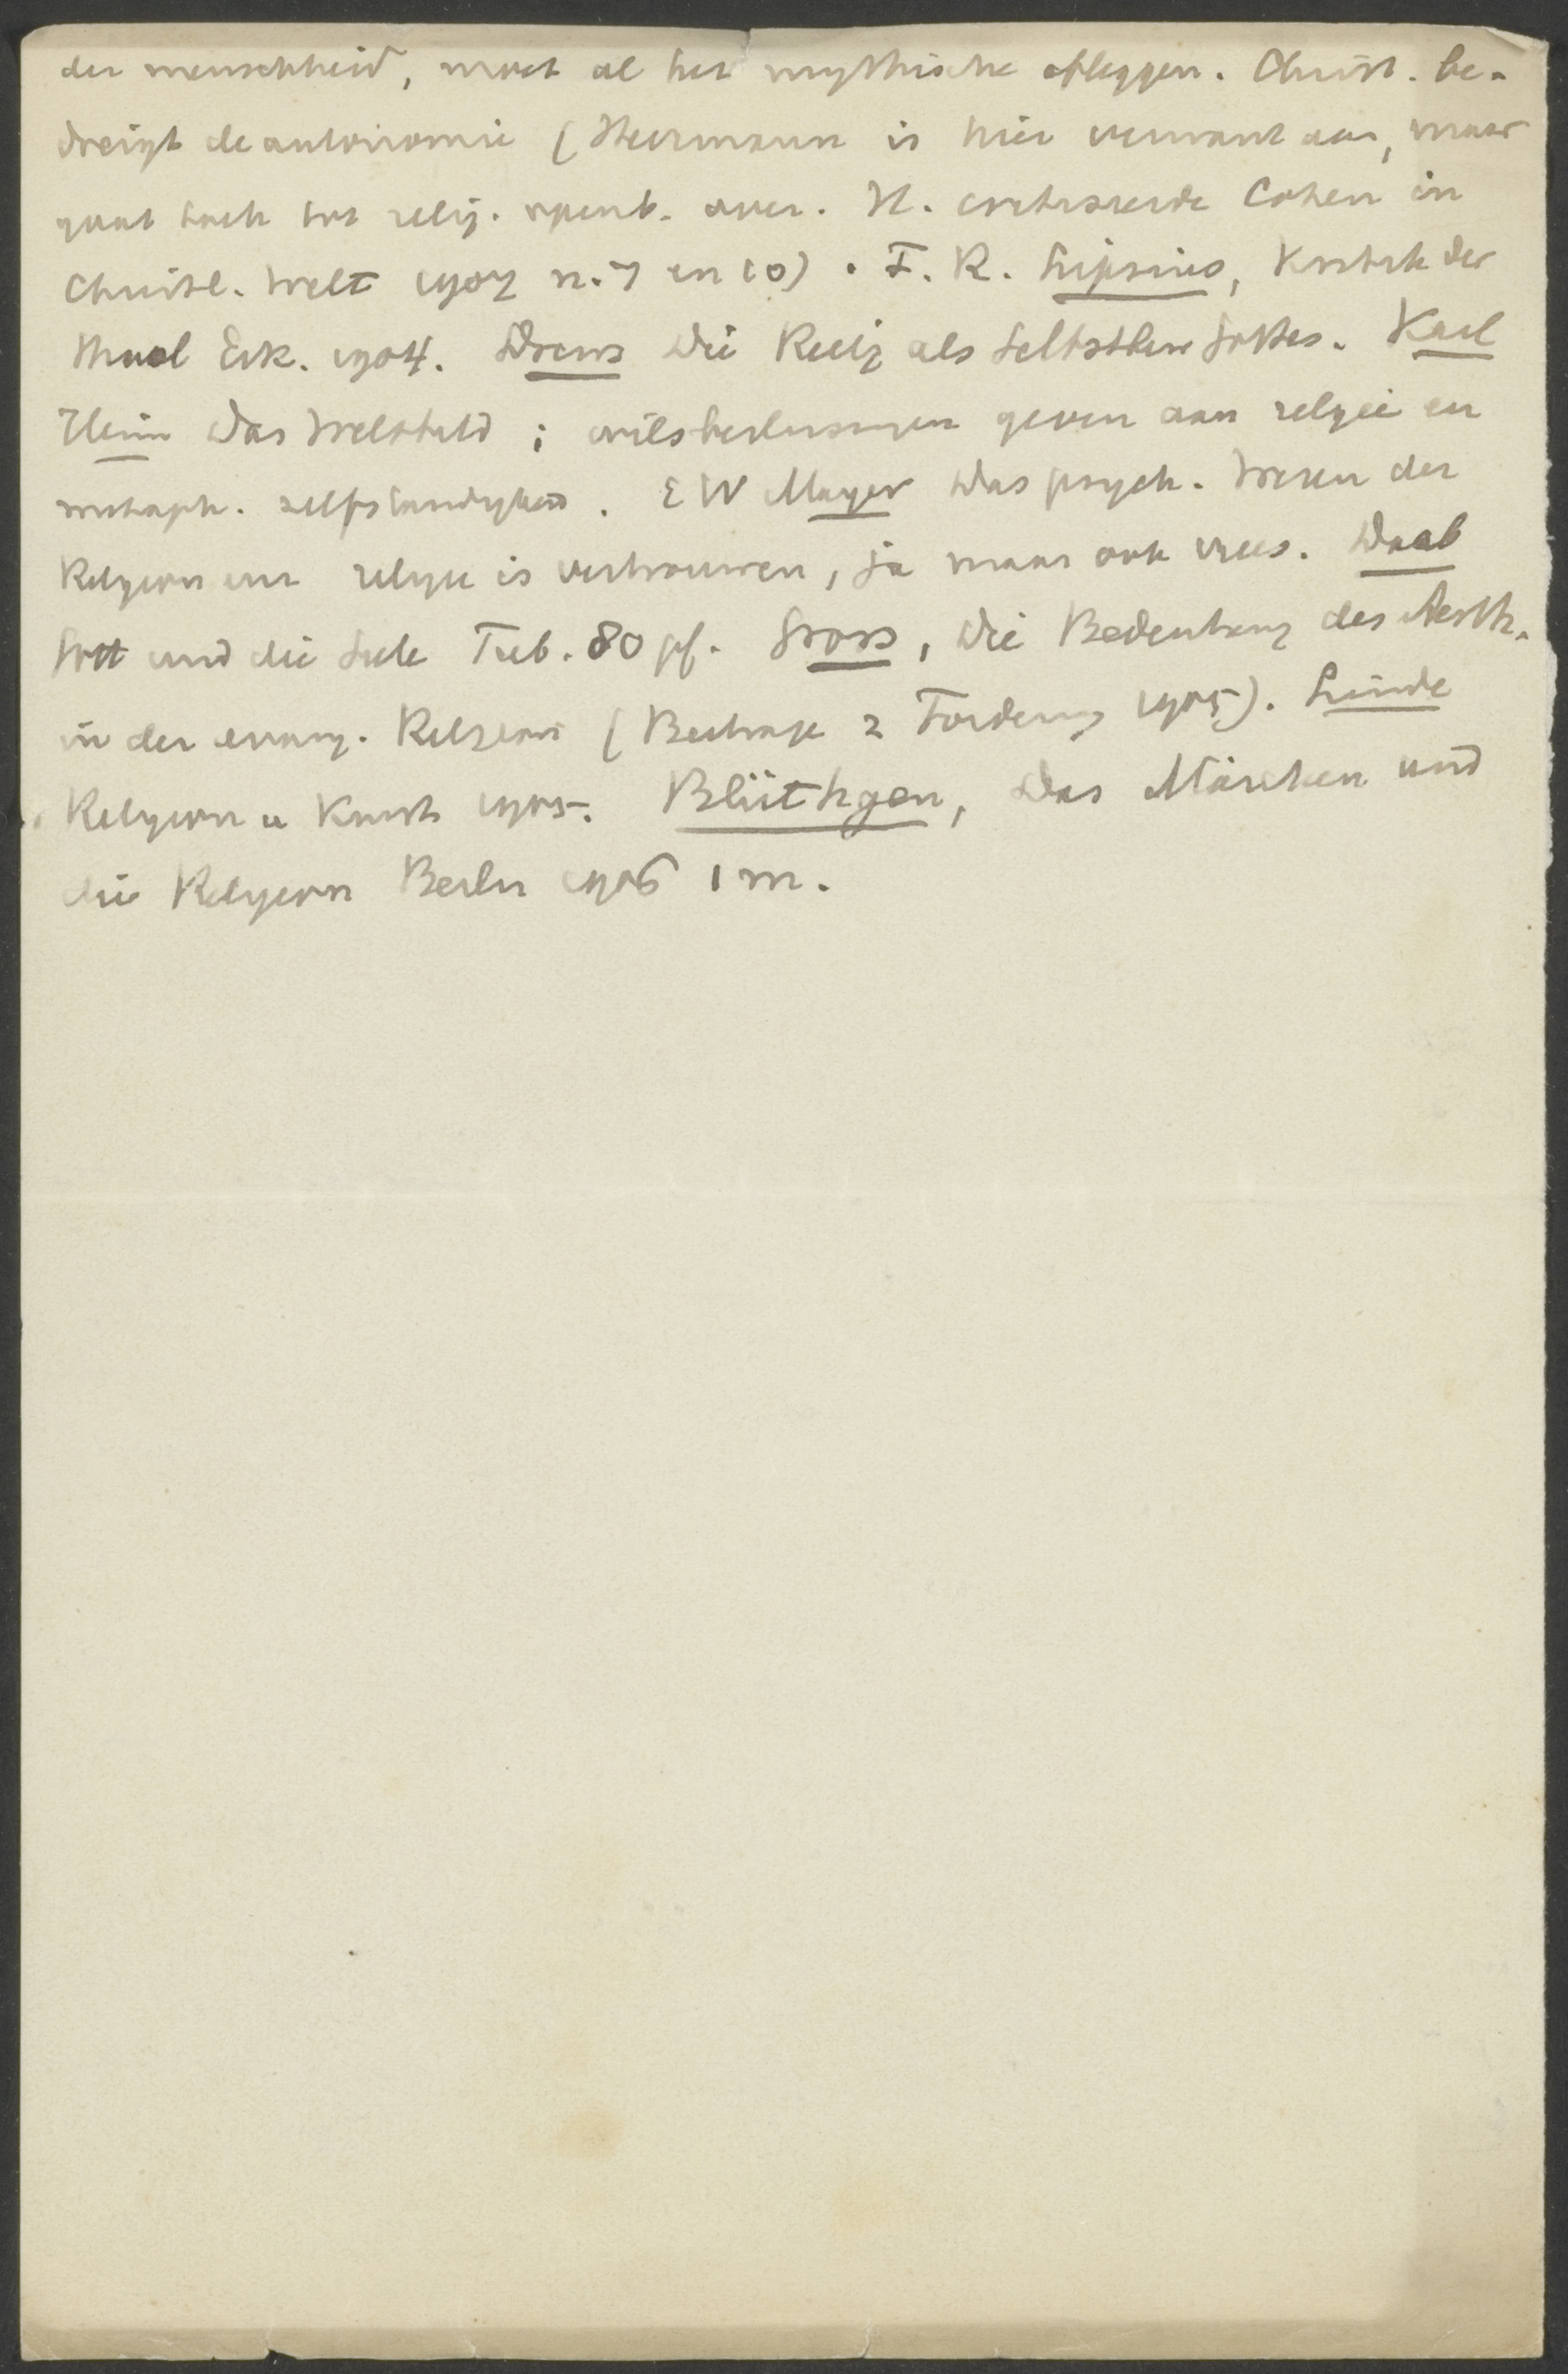 der menschheid, moet al het mythische afleggen. Christ. be-
dreigt de autonomie (Herrmann is hier verwant aan, maar
gaat toch tot relig. openb. over. H. critiseerde Cohen in
Christl. Welt 1907 n. 7 en 10). F. R. Lipsius, Kritik der
theol Erk. 1904. Drews Die Relig als Selbstbew Gottes. Karl
Heim Das Weltbild; wilsbeslissingen geven aan religie en
metaph. zelfstandigheid. E W Mayer Das psych. Wesen der
Religion en religie is vertrouwen, ja maar ook vrees. Daab
Gott und die Seele Tub. 80 pf. Gross, Die Bedeutung des Aesth.
in der evang. Religion (Beitrage z Forderung 1905). Linde
Religion u Kunst 1905. Blüthgen, Das Märchen und
die Religion Berlin 1906 1 m.